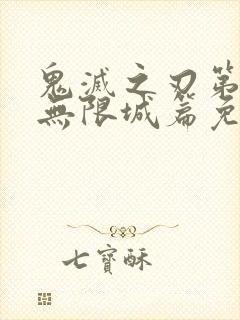 鬼滅之刃第
無限城篇免
七寶酥